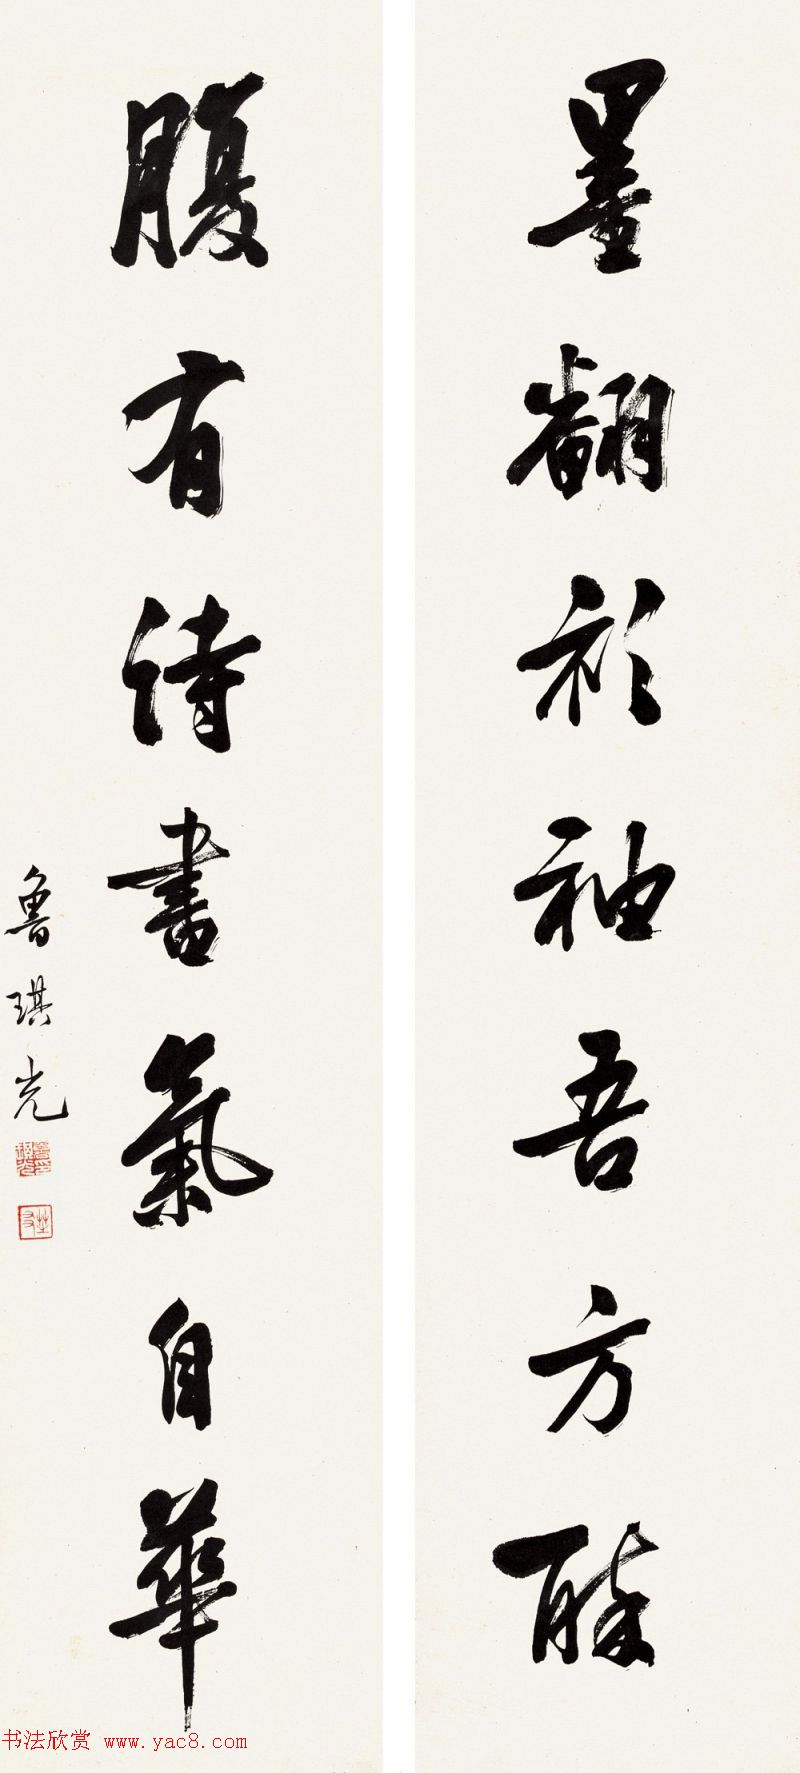 墨翻衫袖吾方醉
腹有诗書氣自華
魯琪光
书法欣赏 www.yac8.com